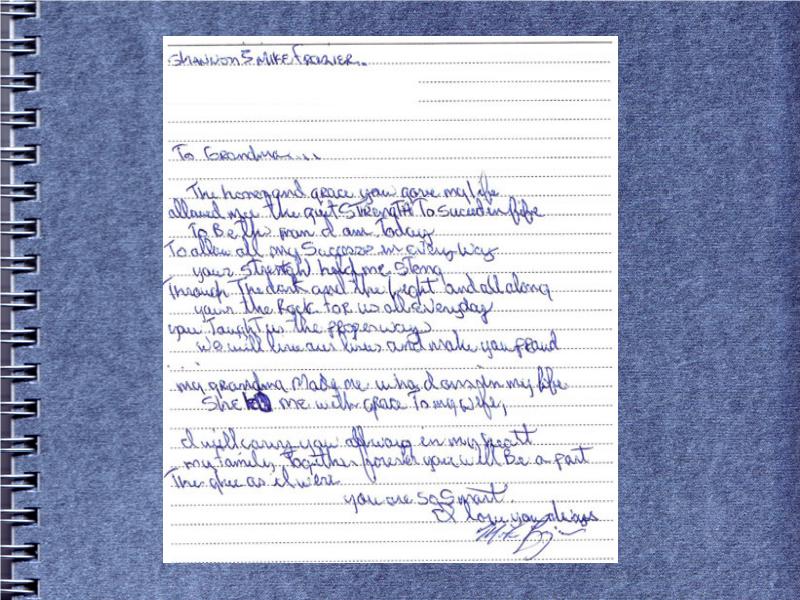 SHANNON & MIKE FRAZIER.
To Grandma....
The honor and grace you gave my life
allowed me the quiet STRENGTH To succed in life
To Be the man I am Today
To allow all my Success in every way
your strength held me
Through The dark and the light and all along
your the Rock FOR us all everyday
you Taught us the proper ways
we will live our lives and make you proud
my grandma Made me who I am in my life
She me with grace To my wife,
I will carry you always in my heart
my family, Together forever you will Be a part
The glue as it were
you are so Smart.
I love you always